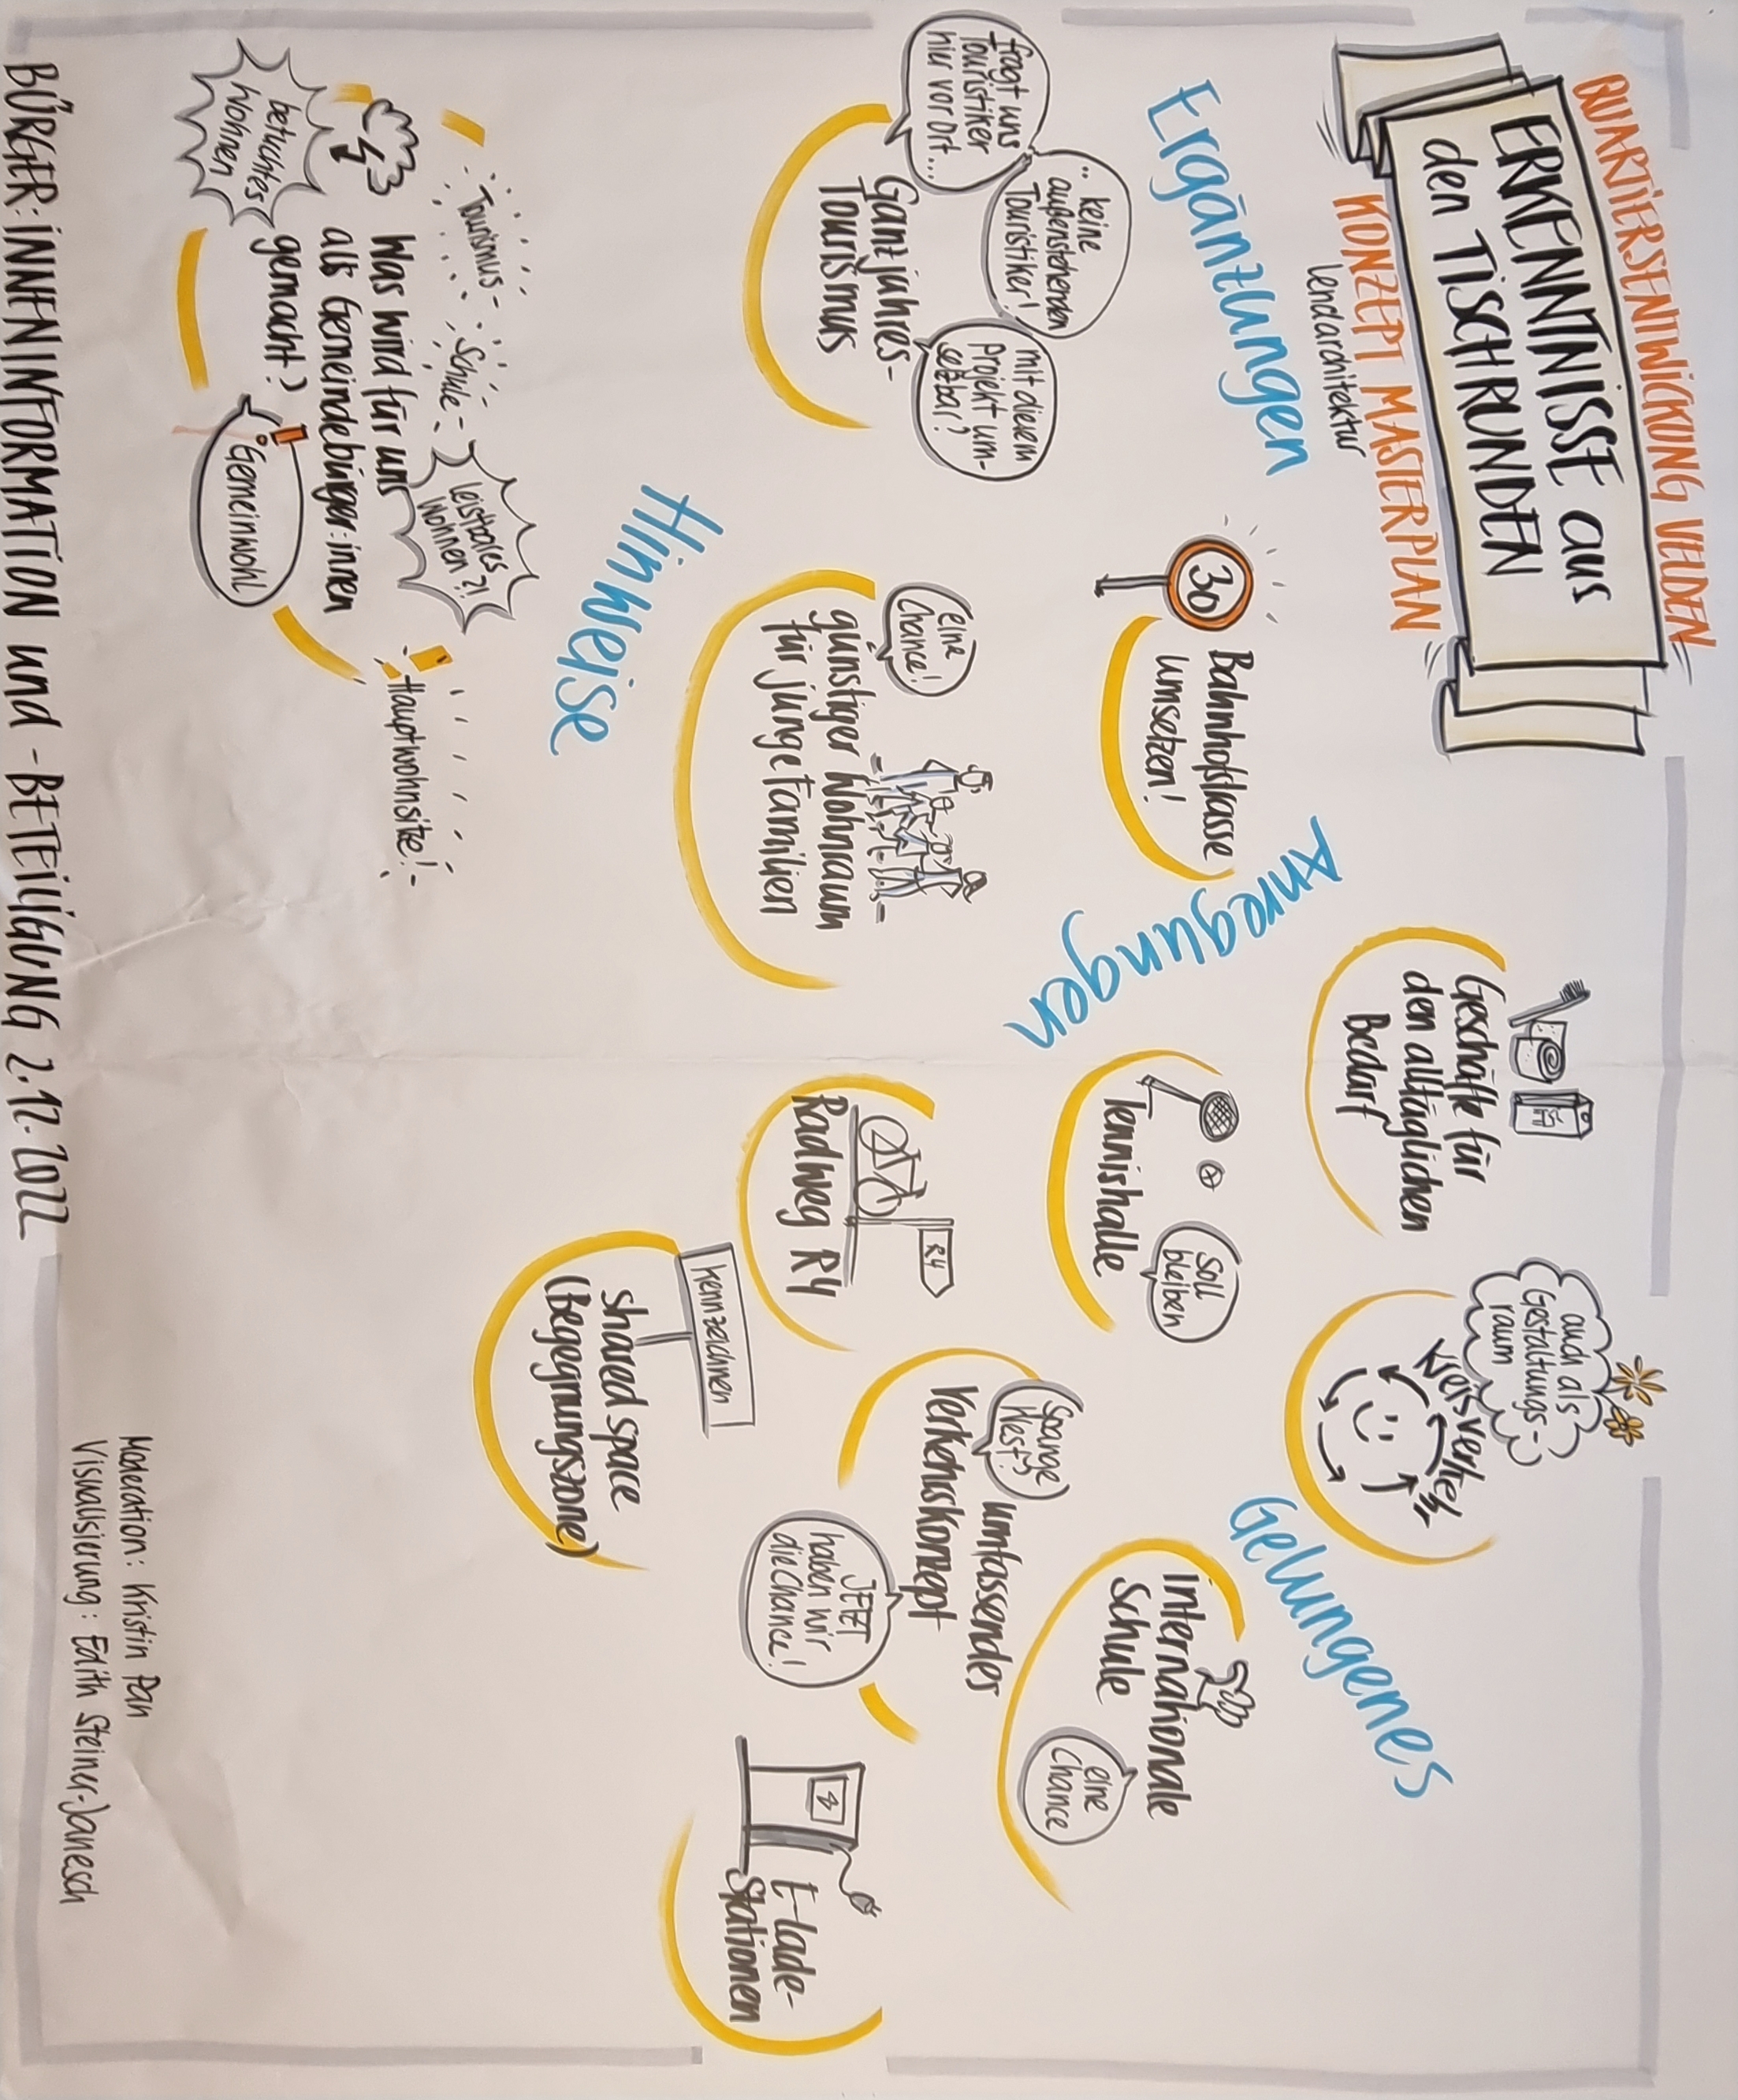 QUARTIERSENTWICKLUNG VELDEN
ERKENNTNISSE aus
den TISCHRUNDEN
KONZEPT MASTERPLAN
lendarchitektur
Ergänzungen
Anregungen
Gelungenes
Hinweise
fragt uns
Touristiker
hier vor Ort...
.. keine
außenstehenden
Touristiker!
mit diesem
Projekt um-
setzbar?
Ganzjahres-
Tourismus
30
Bahnhofstrasse
umsetzen!
Geschäfte für
den alltäglichen
Bedarf
auch als
Gestaltungs-
raum
Kreisverkehr
eine
Chance!
günstiger Wohnraum
für junge Familien
Tennishalle
soll
bleiben
Internationale
Schule
eine
Chance
R4
Radweg R4
Spange
West?
umfassendes
Verkehrskonzept
JETZT
haben wir
die Chance!
kennzeichnen
shared space
(Begegnungszone)
E-Lade-
Stationen
Tourismus-
Schule-
leistbares
Wohnen?!
betuchtes
Wohnen
Was wird für uns
als Gemeindebürger:innen
gemacht?
Gemeinwohl
Hauptwohnsitze!
Moderation: Kristin Pan
Visualisierung: Edith Steiner-Janesch
BÜRGER:INNENINFORMATION und -BETEILIGUNG 2.12.2022